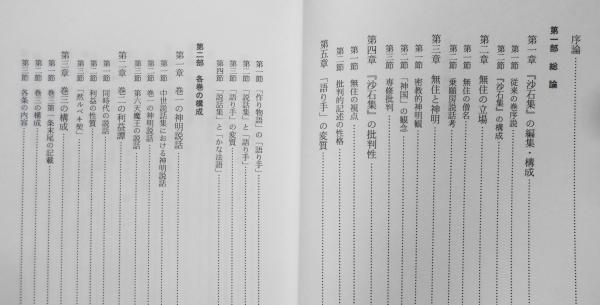 序論
第一部 総論
第一章 『沙石集』の編集・構成
第一節 従来の巻序説
第二節 『沙石集』の構成
第二章 無住の立場
第一節 無住の僧名
第二節 乗願房説話考
第三章 無住と神明
第一節 密教的神明観
第二節 「神国」の観念
第三節 専修批判
第四章 『沙石集』の批判性
第一節 無住の視点
第二節 批判的記述の性格
第五章 「語り手」の変質
第一節 「作り物語」の「語り手」
第二節 「説話集」と「語り手」
第三節 「語り手」の変質
第四節 「説話集」と「かな法語」
第二部 各巻の構成
第一章 巻一の神明説話
第一節 中世説話集における神明説話
第二節 巻一の神明説話
第三節 第六天魔王の説話
第二章 巻二の利益譚
第一節 同時代の説話
第二節 利益の性質
第三節 「然ルベキ契」
第三章 巻三の構成
第一節 巻三第一条末尾の記載
第二節 巻三の構成
第三節 各条の内容